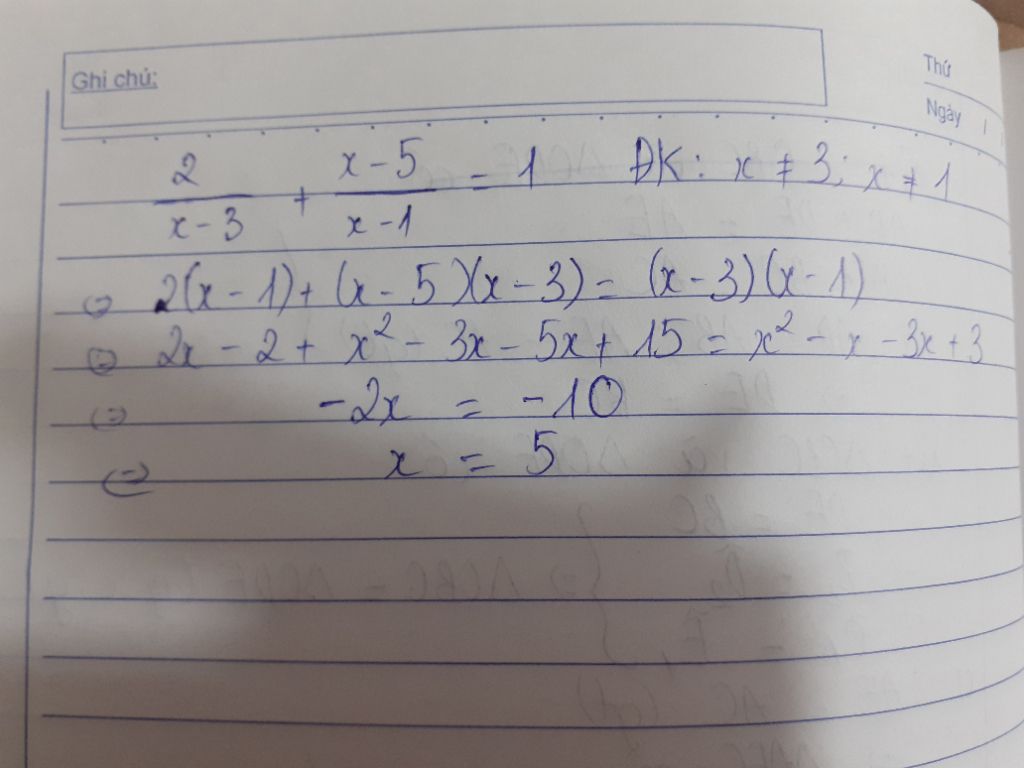 Ghi chú:
Thứ
Ngày /
2/(x-3) + (x-5)/(x-1) = 1 ĐK: x ≠ 3; x ≠ 1
<=> 2(x-1) + (x-5)(x-3) = (x-3)(x-1)
<=> 2x - 2 + x² - 3x - 5x + 15 = x² - x - 3x + 3
<=> -2x = -10
<=> x = 5